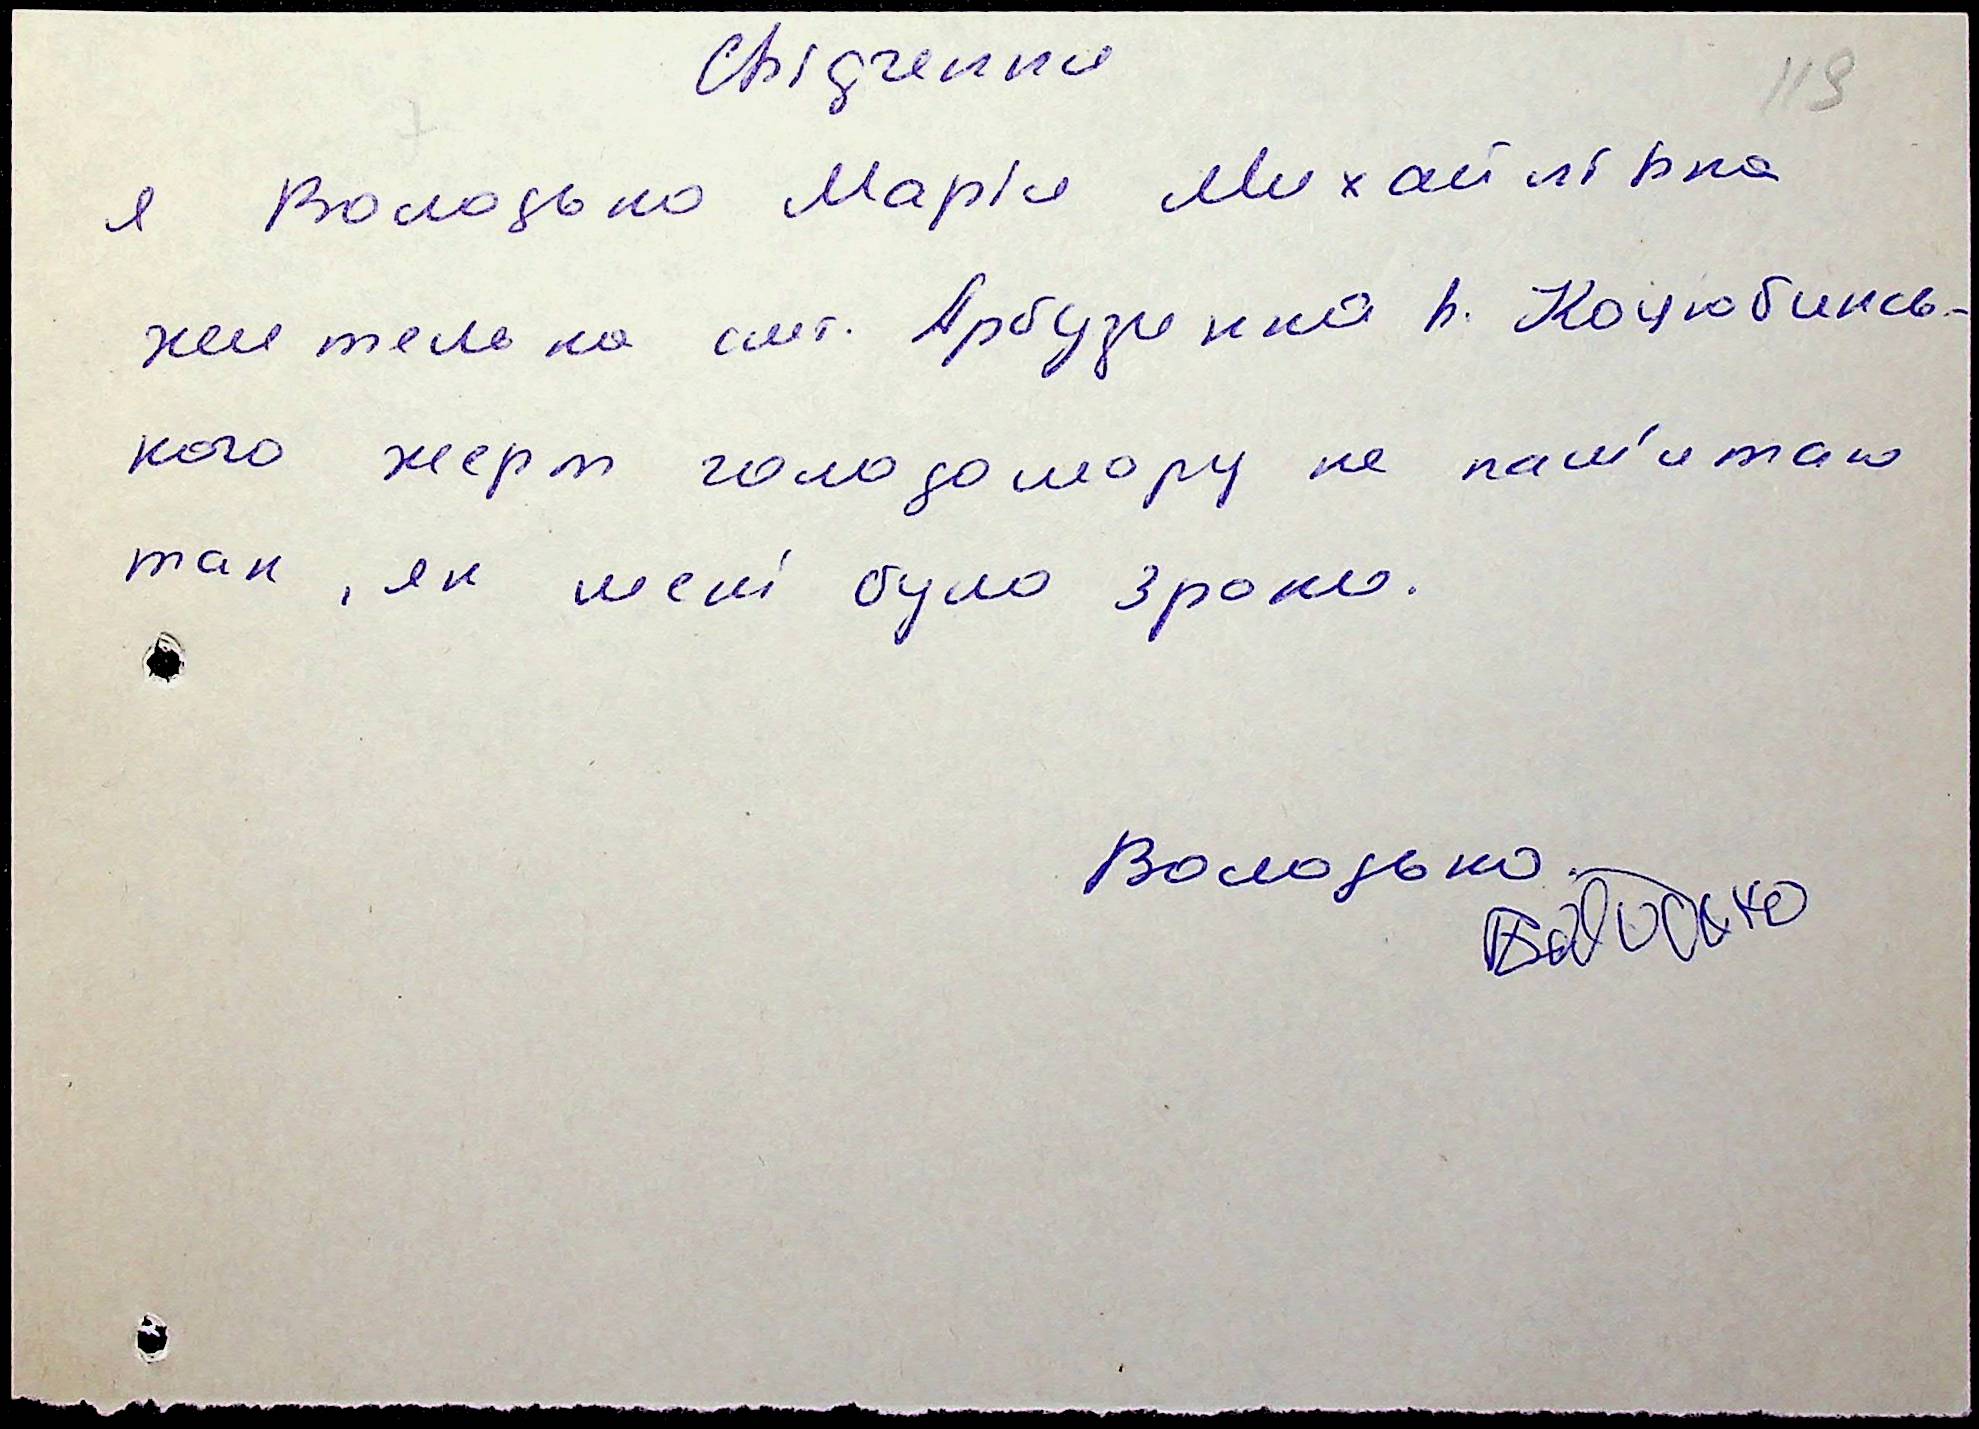 Свідчення
119
я Володько Марія Михайлівна
жителька смт. Арбузинка в. Коцюбинсь-
кого жертв голодомору не пам'ятаю
так, як мені було 3 роки.
Володько.
Володько